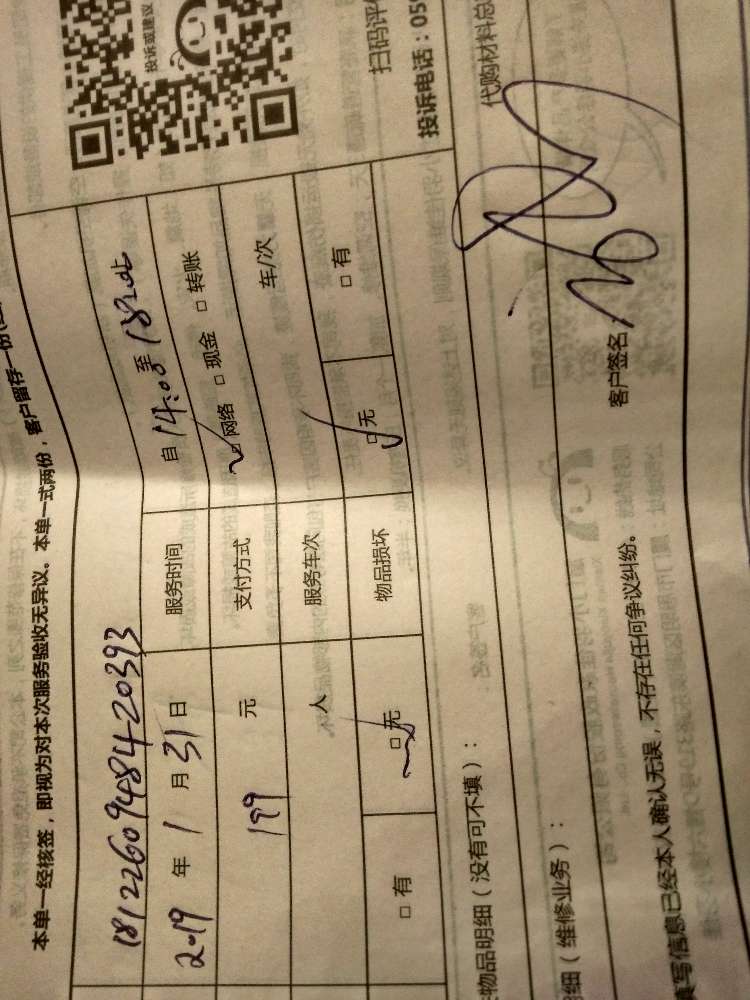 本单一经核签，即视为对本次服务验收无异议。本单一式两份，客户留存一份
18122609484-20393
2019 年 1 月 31 日 服务时间 自 14:00 至
199 元 支付方式 网络 □ 现金 □ 转账
人 服务车次 车/次
□ 有 □ 无 物品损坏 □ 无 □ 有
投诉或建议
扫码评
投诉电话：059
物品明细（没有可不填）：
代购材料总
细（维修业务）：
客户签名
填写信息已经本人确认无误，不存在任何争议纠纷。